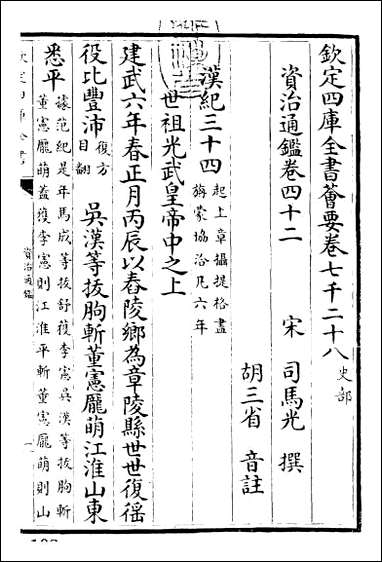 欽定四庫全書薈要卷七千二十八 史部
資治通鑑卷四十二
宋 司馬光 撰
胡三省 音註
漢紀三十四 起上章攝提格盡旃蒙協洽凡六年
世祖光武皇帝中之上
建武六年春正月丙辰以舂陵鄉為章陵縣世世復徭
役比豐沛 復方目翻 吳漢等拔朐斬董憲龐萌江淮山東
悉平 據范紀是年馬成等拔舒獲李憲吳漢等拔朐斬董憲龐萌蓋獲李憲則江淮平斬董憲龐萌則山
欽定四庫全書
資治通鑑
一